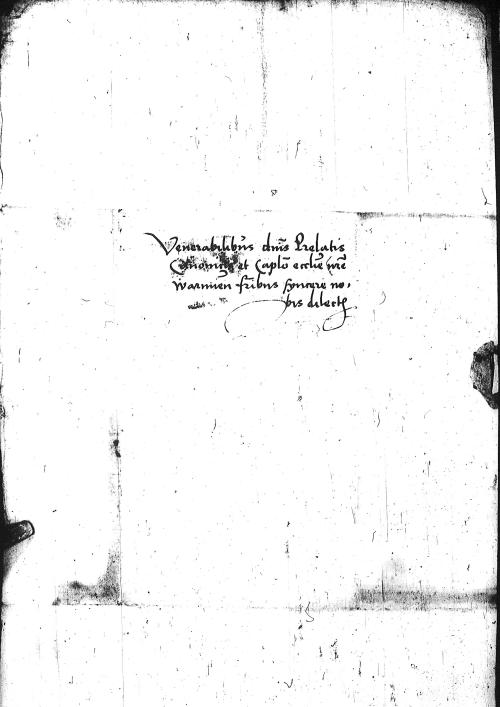 Venerabilibus dnis Prelatis
Canonicis et Caplo ecclie nre
Warmien fribus syncere no-
bis dilectis